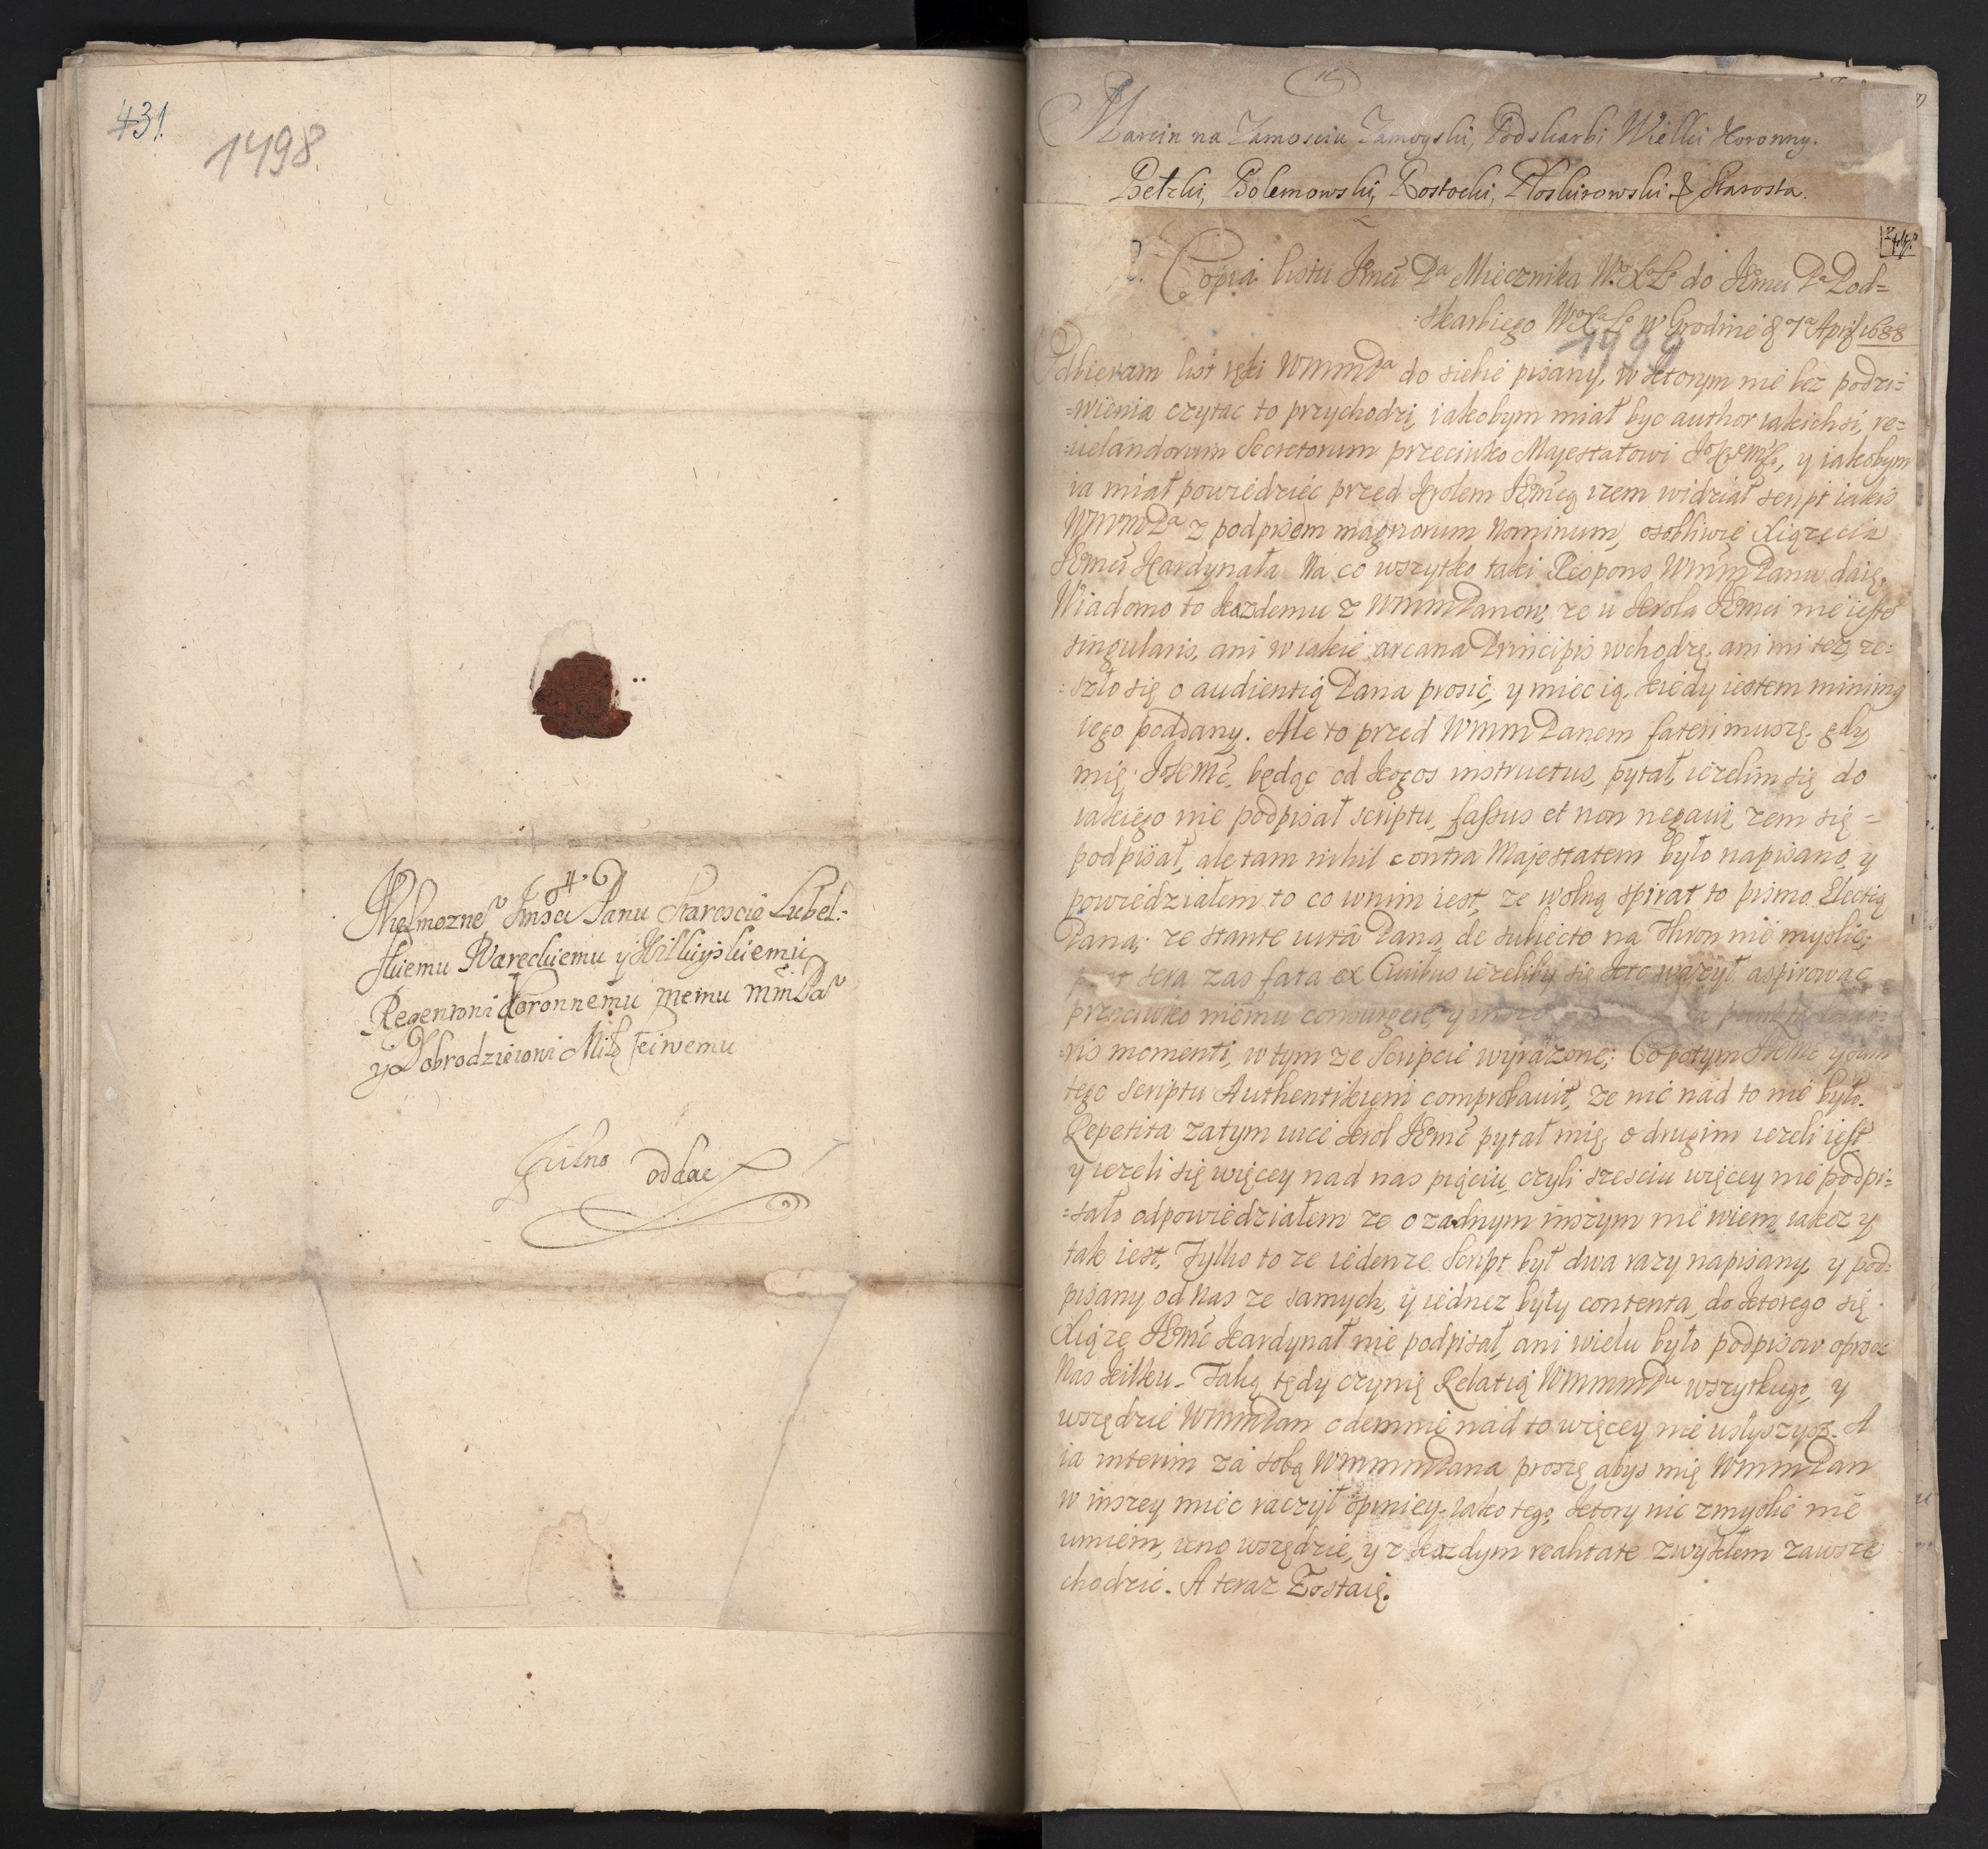 431.
1498.
Wielmoznem̃ Jmsci Panu Staroscie Lubel:
skiemu Wareckiemu y Kilkijskiemu
Regentowi Koronnemu memu mm Panu
y Dobrodzieiowi Miłościwemu
Pilno oddac
Marcin na Zamosciu Zamoyski, Podskarbi Wielki Koronny.
Bełzki, Bolemowski, Rostocki, Płoskirowski & Starosta.
Copia listu Jmci Pa Miecznika W. X. L. do Jmci Pa Pod=
=skarbiego W X L w Grodnie d 7a Aprij 1688
1499
Odbieram list ręki WMMPa do siebie pisany, w ktorym nie bez podzi=
=wienia czytac to przychodzi, iakobym miał byc author iakichsi, re=
=uelandorum Secretorum przeciwko Majestatowi JKMsci, y iakobym
ia miał powiedziec przed Krolem Jmcią zem widział script iakis
WMMPa z podpisem magnorum Nominum, osobliwie Xiązęcia
Jmci Kardynała Na co wszytko taki Respons WMM Panu daię.
Wiadomo to kazdemu z WMM Panow, ze u Krola Jmci nie iest
singularis, ani w iakie arcana Principis wchodzę, ani mi tez ze=
=szło się o audientią Pana prosic, y miec ią, kiedy iestem minimus
iego poddany. Ale to przed WMM Panem fateri muszę, gdy
mię JKMc, będąc od kogos instructus, pytał, iezelim się do
iakiego nie podpisał scriptu, fassus et non negaui, zem się =
podpisał, ale tam nihil contra Majestatem było napisano, y
powiedziałem to co w nim iest, ze wolną spirat to pismo Electią
Pana; ze stante uita Pana, de subiecto na Thron nie myslic;
post sera zas fata ex Ciuibus iezeliby się kto wazył aspirowac
przeciwko niemu consurgere, y
=ris momenti, w tym ze Scripcie wyrazone; Co potym JKMc y sam
tego scriptu Authentikiem comprobauit, ze nic nad to nie było.
Repetita zatym uice Krol Jmc pytał mię, o drugim iezeli iest,
y iezeli się więcey nad nas pięciu, czyli szesciu więcey nie podpi=
=sało odpowiedziałem ze o zadnym inszym nie wiem, iakoz y
tak iest, Tylko to ze iedenze Script był dwa razy napisany, y pod=
pisany od nas ze samych, y iednez były contenta, do ktorego się
Xiąze Jmc Kardynał nie podpisał, ani wielu było podpisow oprocz
Nas kilku. Taką tedy czynię Relatią WMMMPu wszytkiego, y
wszędzie WMM Pan odemnie nad to więcey nie usłyszysz. A
ia interim za sobą WMMM Pana proszę, abys mię WMM Pan
w inszey miec raczył opiniey, iako tego, ktory nic zmyslic nie
umiem, ieno wszędzie, y z kazdym realitate zwykłem zawsze
chodzic. A teraz Zostaię.